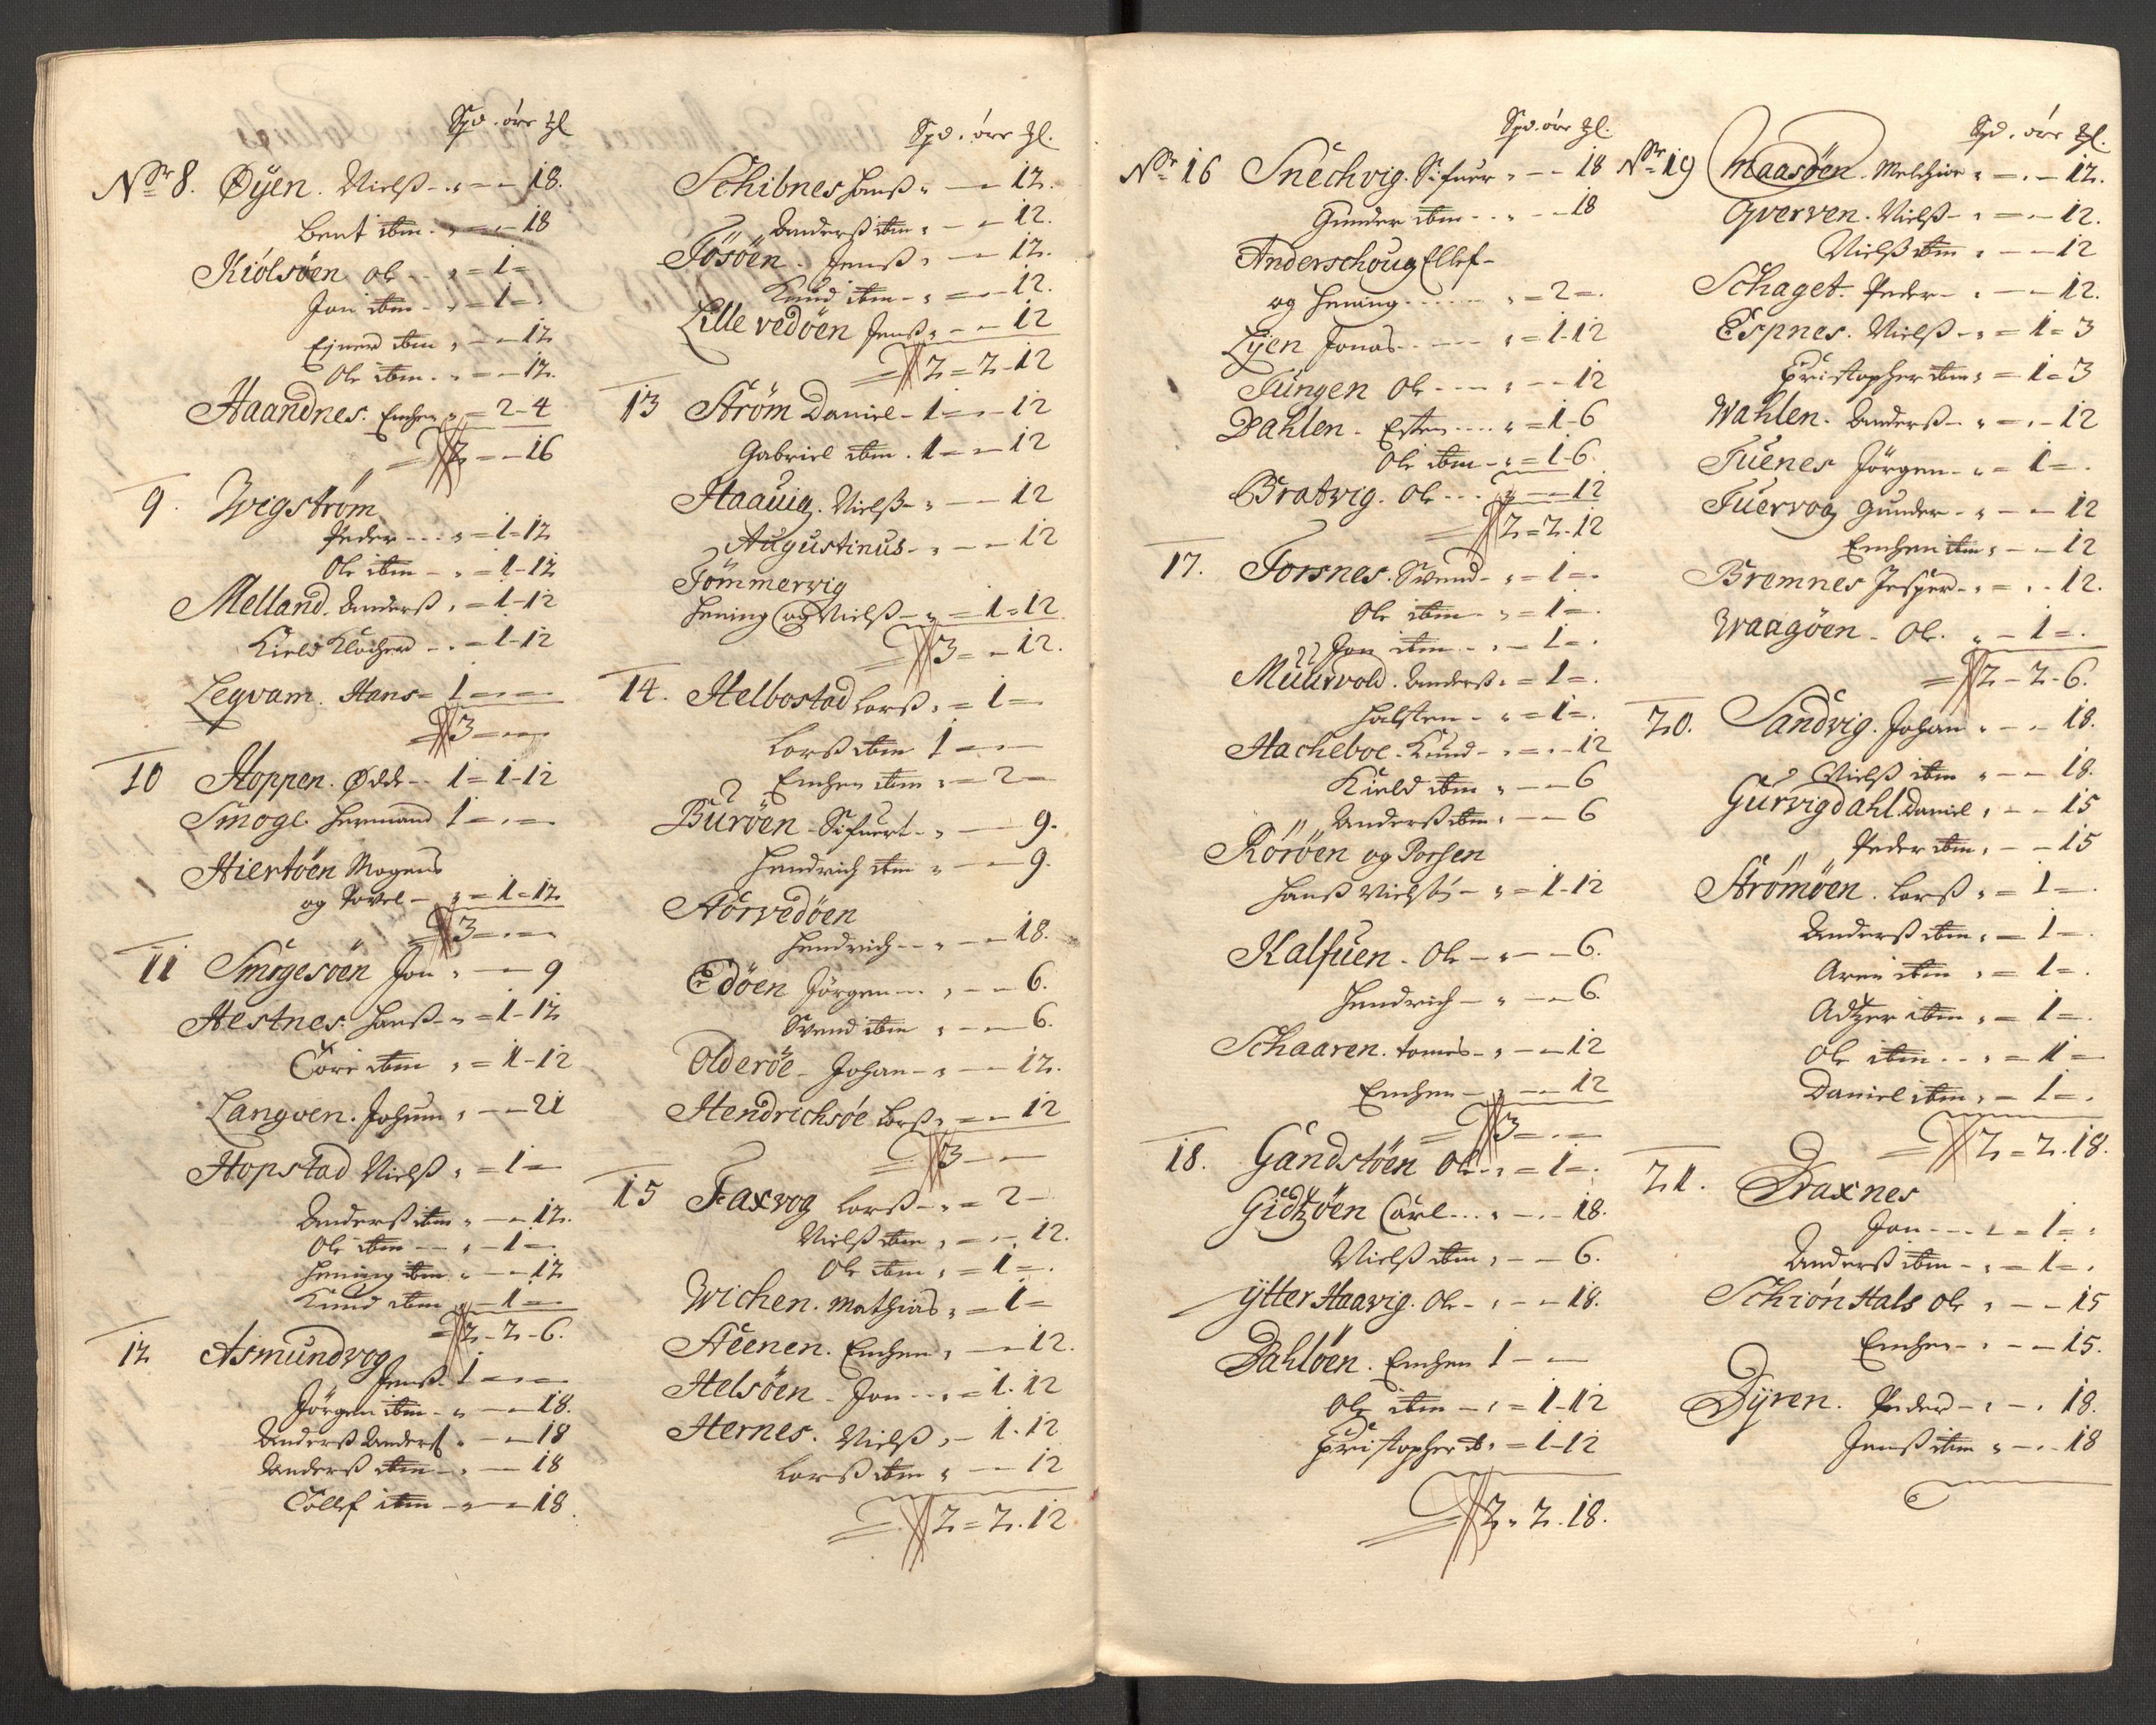 Spd. öre ꝫl
Nr 8. Øÿen. Nielß - „ = - 18.
Bent ibm. „ = - 18
Kiölsöen Ol - - „ = 1 =
Jon ibm - „ = 1 -
Ejnerd ibm „ - - 12
Ole ibm. „ = - 12.
Haandnes. Encher „ = 2 - 4
2 - - 16
9. Wigström
Peder - - - „ = 1 - 12
Ole ibm - „ = 1 - 12
Melland. Anderß „ = 1 - 12
Kield Klocher - „ = 1 - 12
Legvam. Hans = 1 - - -
3 - - -
10 Hoppen. Odde - - 1 = 1 - 12
Smoge. Hermand 1 - - -
Hiertöen Mogens
og Povel - „ = 1 = 12
3 - - -
11 Smögesöen Jon „ - - 9
Hestnes. Hanß - „ = 1 - 12
Töre ibm „ = 1 - 12
Langöen. Johan „ - - 21
Hopstad Nielß „ = 1 -
Anderß ibm „ - - 12.
Ole ibm - - „ - 1 -
Hening ibm „ - - 12
Knud ibm „ = 1 -
2 - 2 - 6.
12 Asmundvog
Jenß. 1 - - -
Jörgen ibm - „ - - 18.
Anderß Anders „ - - 18
Anderß ibm - „ - - 18
Tollef ibm - „ - - 18.
Spd. öre ꝫl.
Schibnes Hanß „ - - 12.
Anderß ibm „ - - 12.
Tösöen. Jenß „ - - 12.
Knud ibm - „ = - 12.
Lille vedöen Jenß „ - - 12
2 = 2 - 12
13 Ström Daniel - 1 = - 12
Gabriel ibm. 1 = - 12
Haavig. Nielß - „ - - 12
Augustinus - „ - - 12
Tömmervig
Hening og Nielß - „ = 1 = 12
3 = - 12.
14. Helbostad Larß „ = 1 -
Larß ibm 1 - - -
Encher ibm „ = 2 -
Buröen - Sifuert - „ - - 9.
Hendrich ibm „ - - 9.
Nörvedöen
Hendrich - - „ - - 18.
Edöen Jörgen - - „ - - 6.
Svend ibm „ - - 6.
Olderöe - Johan - „ - - 12.
Hendrichsöe Larß „ = - 12
3 - -
15 Faxvog Larß - „ = 2 -
Nielß ibm „ = - 12.
Ole ibm „ = 1 -.
Wichen. Mathias „ = 1 =
Steenen. Encher „ - - 12.
Helsöen - Jon - - „ = 1. 12
Hernes. Nielß „ - 1. 12
Larß ibm „ - - 12
2 = 2. 12
Spd. öre ꝫl.
Nr 16 Snechvig. Sifuer „ - - 18
Gunder ibm - - „ - - 18
Anderschoug Ellef -
og Hening - - - - „ = 2 =.
Lÿen Jonas - - - „ = 1 - 12
Tüngen Ole - - - „ - - 12
Dahlen - Esten - - - „ = 1 - 6
Ole ibm - „ = 1 - 6.
Bratvig. Ole - - - „ = - 12
2 = 2 - 12
17. Forsnes. Svend - „ = 1 = -
Ole ibm - „ = 1 =.
Jon ibm - „ - 1 - .
Müurvold. Anderß „ = 1 =.
Halsten - „ = 1 =.
Hacheboe - Knud - „ = - 12
Kield ibm „ - - 6
Anderß ibm „ - - 6
Röröen og Porsen
Hanß Nielß. - „ = 1 - 12
Kalfuen - Ole - „ - - 6.
Hendrich - „ - - 6.
Schaaren. Tomes - „ - - 12
Encher - „ - - 12
3 = - -
18. Gandstöen Ole - „ = 1 =.
Gidtzöen Carl - - „ - - 18.
Nielß ibm „ - - 6.
ÿtter Haavig. Ole - „ - - 18.
Dahlöen. Encher 1 - -
Ole ibm - „ = 1 - 12
Christopher ib. „ = 1 - 12
2 „ 2. 18.
Spd. öre ꝫl.
Nr 19 Maasöen. Melchior „ = - - 12.
Qverven. Nielß - „ = - 12.
Nielß ibm „ - - 12
Schaget. Peder - „ - - 12.
Espnes. Nielß - „ = 1 = 3
Christopher ibm „ = 1 = 3
Wahlen. Anderß - „ = - 12
Tuenes Jörgen - „ = 1 =.
Tuervog Gunder - „ - - 12
Encher ibm „ - - 12
Bremnes Jesper - „ = „ - 12.
Waagöen - Ole. „ - 1 =.
2 - 2 - 6.
20. Sandvig. Johan „ - - 18.
Nielß ibm „ - - 18.
Gurvigdahl. Daniel „ - - 15
Peder ibm „ - - 15
Strömöen. Larß „ = 1 -.
Anderß ibm „ = 1 -.
Aren ibm „ = 1 =.
Adtzer ibm „ = 1 =.
Ole ibm - - „ = 1 =
Daniel ibm „ - 1 =.
2 = 2. 18.
21. Draxnes
Jon - - - „ = 1 = „
Anderß ibm - „ = 1 = .
Schiön Hals Ole „ - - 15
Encher - „ - - 15.
Dÿren. Peder - „ - . 18.
Jenß ibm „ - . - 18